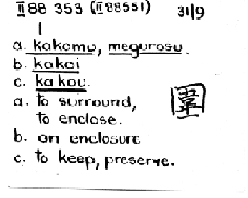 II 88 353 (II 88551) 31|9
1
a. kakomu, megurasu.
b. kakoi
c. kakou.
a. to surround,
to enclose.
b. an enclosure
c. to keep, preserve.